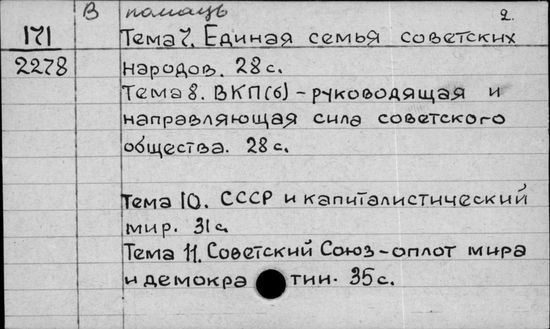 В помощь 2.
171
2278
Тема 7. Единая семья советских
народов. 28 с.
Тема 8. ВКП(б) - руководящая и
направляющая сила советского
общества. 28 с.
Тема 10. СССР и капиталистический
мир. 31 с.
Тема 11. Советский Союз - оплот мира
и демокра тии. 35 с.